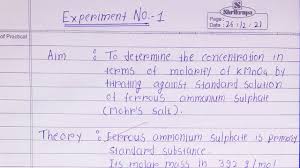 Experiment No.-1
Shri Krupa
Page :
Date : 26/12/23
of Practical
Aim : To determine the concentration in
terms of molarity of KMnO4 by
titrating against standard solution
of ferrous ammonium sulphate
(Mohr's salt).
Theory : Ferrous ammonium sulphate is primary
standard substance.
Its molar mass in 392 g/mol